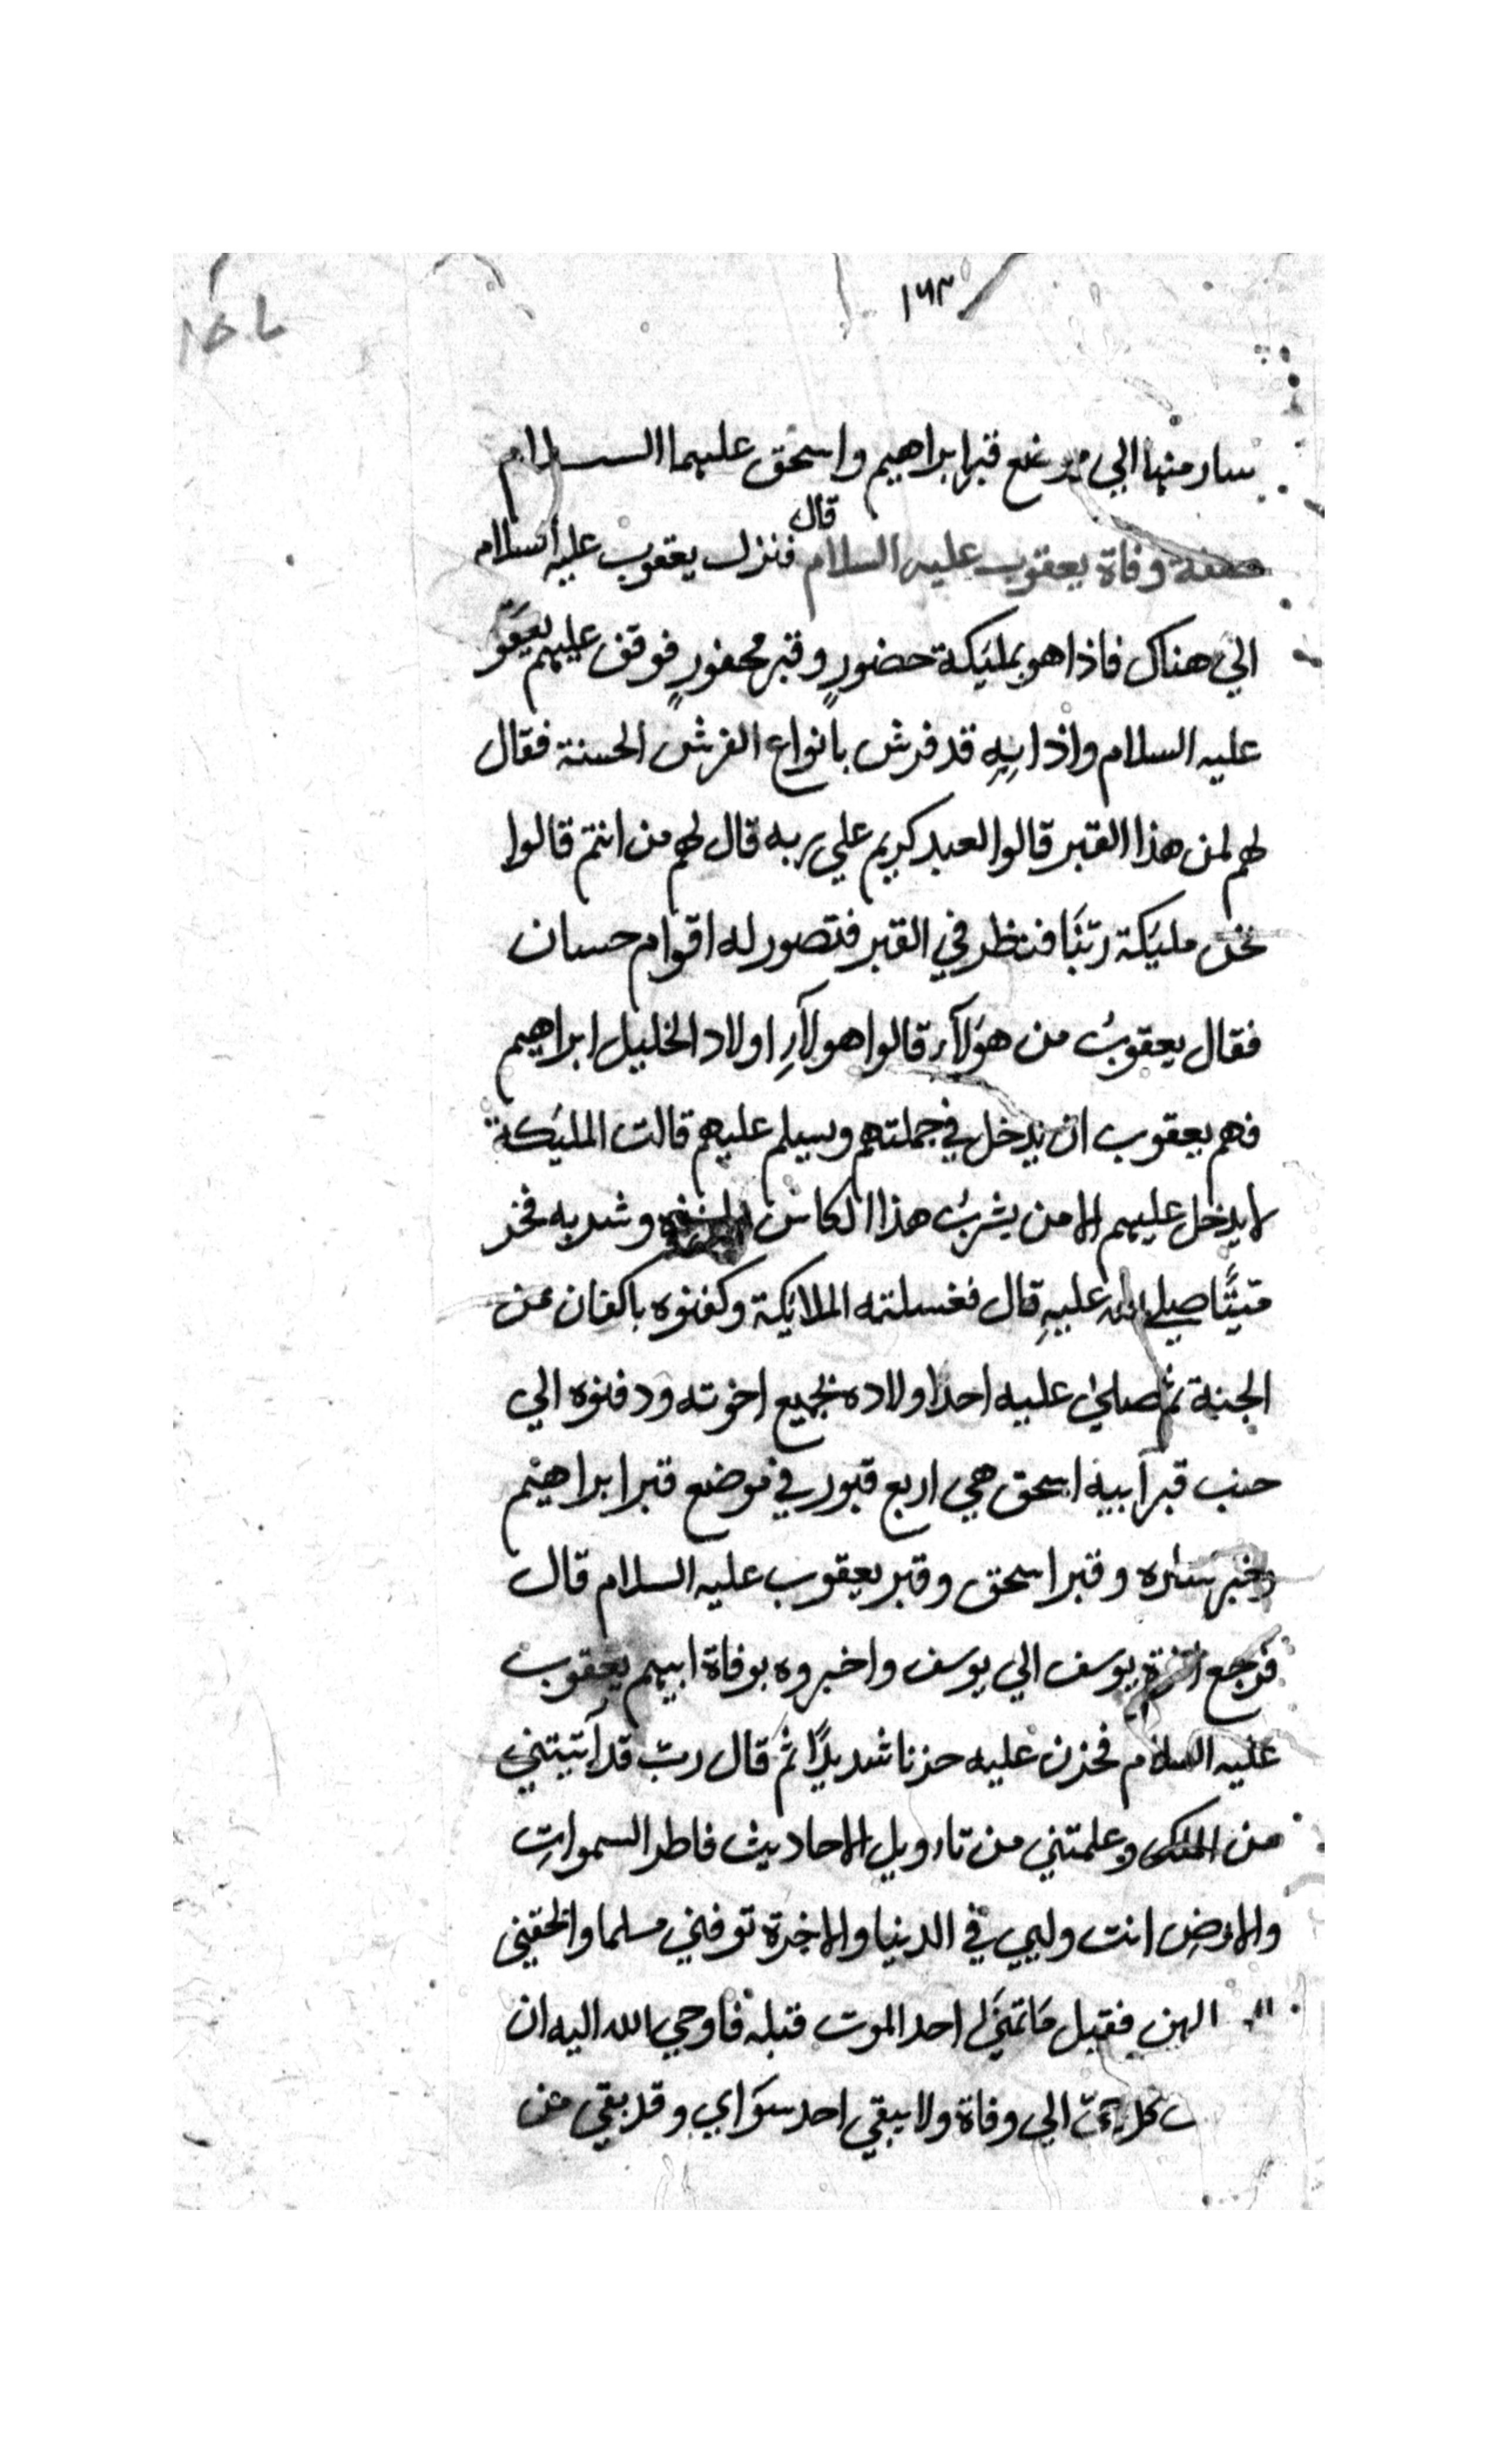 ١٦٣
سار منها الي موضع قبر ابراهيم واسحق عليهما الســـلام
صفة وفاة يعقوب عليه السلام قال فنزل يعقوب عليه السلام
الي هناك فاذا هو بمليكة حضورٍ وقبر محفورٍ فوقف عليهم يعقو
عليه السلام واذا بِهِ قد فرش بانواع الفرش الحسنة فقال
لهم لمن هذا القبر قالوا لعبد كريم علي ربه قال لهم من انتم قالوا
نحن مليكة ربّنَا فنظر في القبر فتصور له اقوام حسان
فقال يعقوبُ من هؤلآء قالوا هولآءِ اولاد الخليل ابراهيم
فهم يعقوب ان يدخل في جملتهم ويسلم عليهم قالت المليكة
لا يدخل عليهم الا من يشربُ هذا الكاس وشربه فخر
ميتًا صلي الله عليهِ قال فغسلته الملايكة وكفنوه باكفان من
الجنة ثم صلي عليه احد اولاده بجميع اخوته ودفنوه الي
جنب قبر ابيه اسحق هي اربع قبور في موضع قبر ابراهيم
وقبر ساره وقبر اسحق وقبر يعقوب عليه السلام قال
فرجع اخوة يوسف الي يوسف واخبروه بوفاة ابيهم يعقوب
عليه السلام فحزن عليه حزنا شديدًا ثم قال ربّ قد آتيتني
من الملك وعلمتني من تاويل الاحاديث فاطر السمواتِ
والارضِ انت وليي في الدنيا والاخرة توفني مسلما والحقني
فقيل مَا تمنَي احد الموت قبله فاوحي الله اليه ان
الي وفاة ولا يبقي احد سوَاي وقد بقي من